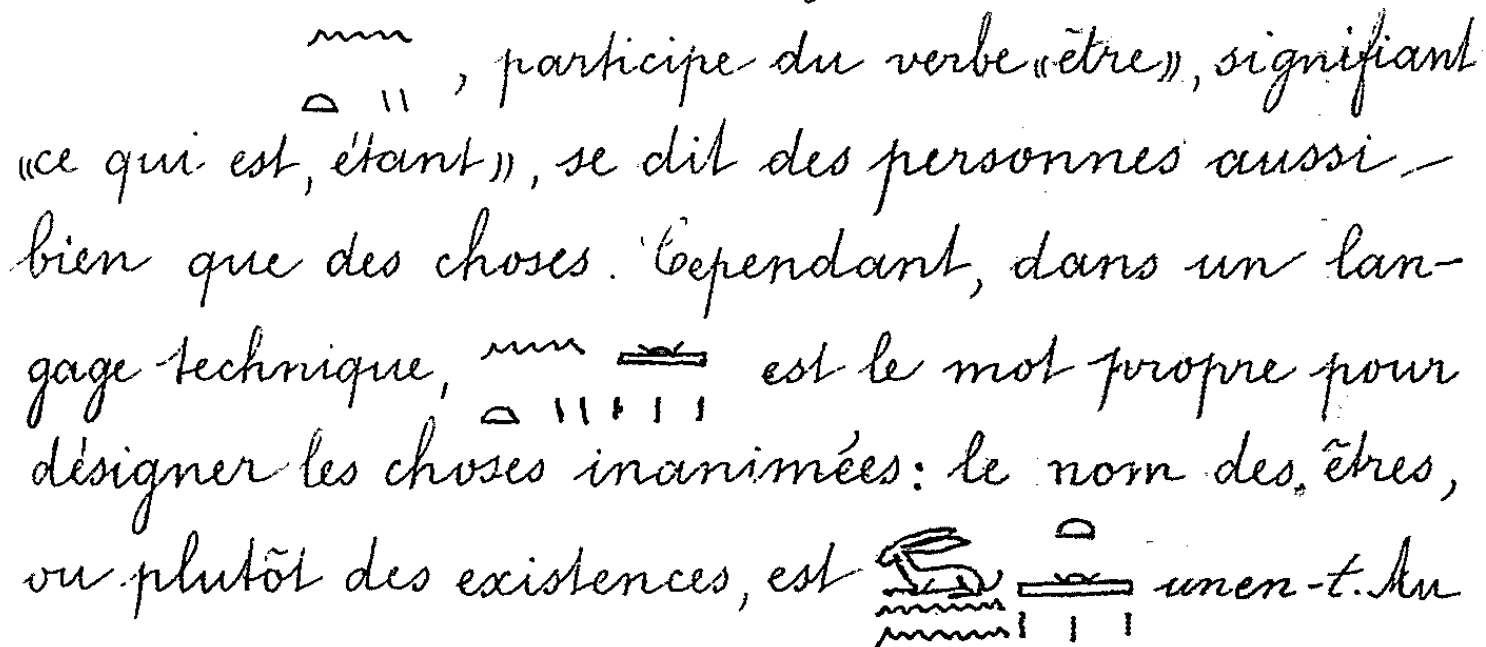 𓈖𓏏𓏭, participe du verbe «être», signifiant
«ce qui est, étant», se dit des personnes aussi
bien que des choses. Cependant, dans un lan-
gage technique, 𓈖𓏏𓏭𓏛𓏥 est le mot propre pour
désigner les choses inanimées: le nom des êtres,
ou plutôt des existences, est 𓃹𓈖𓈖𓏏𓏛𓏥 unen-t. Au